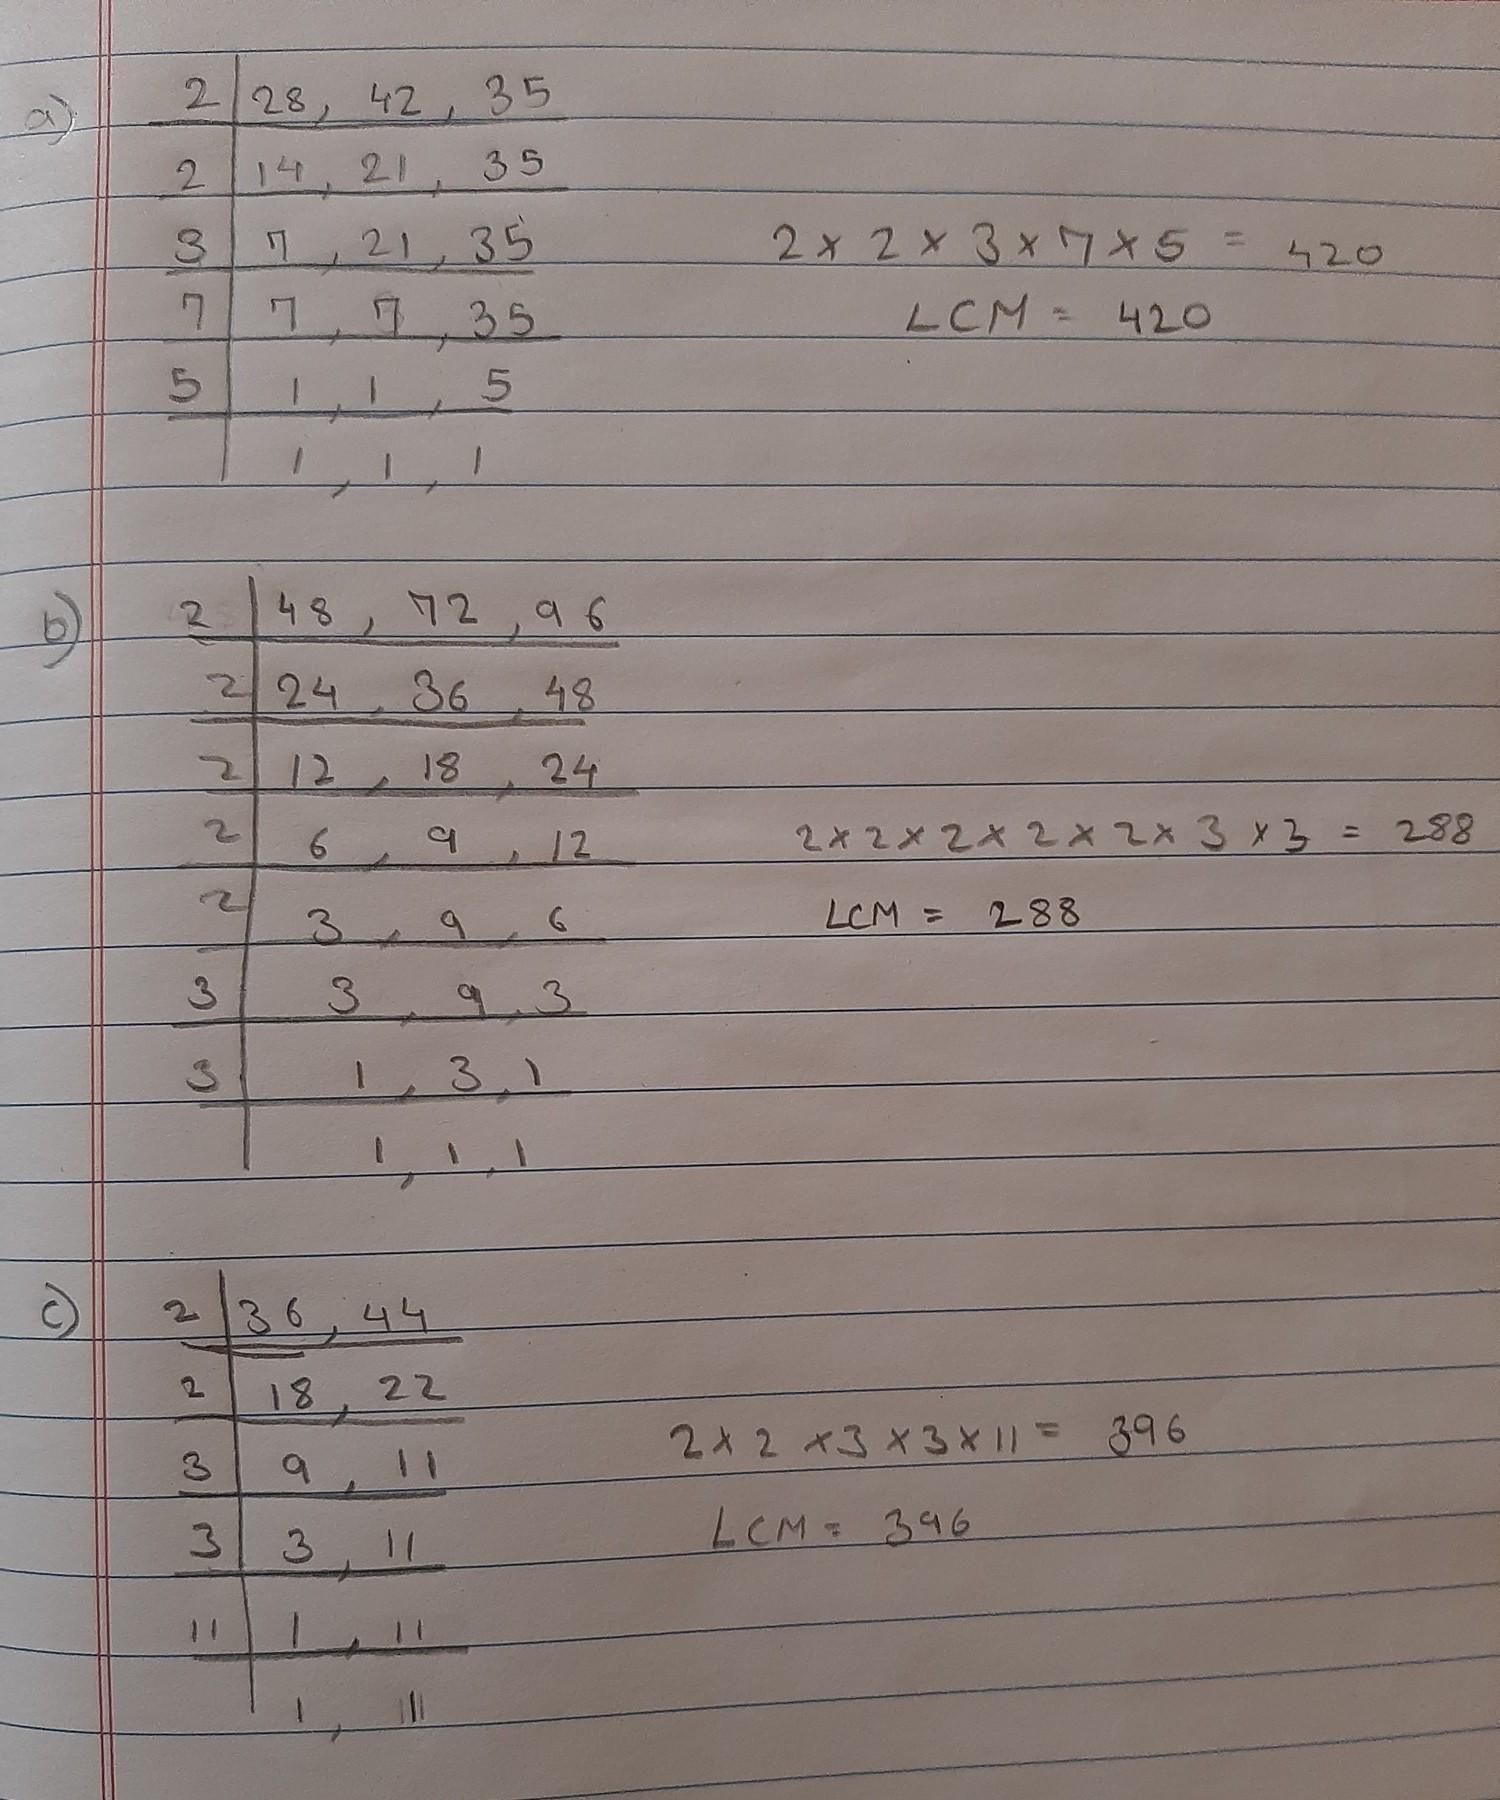 a) 2 | 28, 42, 35
2 | 14, 21, 35
3 | 7, 21, 35 2 × 2 × 3 × 7 × 5 = 420
7 | 7, 7, 35 LCM = 420
5 | 1, 1, 5
1, 1, 1
b) 2 | 48, 72, 96
2 | 24, 36, 48
2 | 12, 18, 24
2 | 6, 9, 12 2 × 2 × 2 × 2 × 2 × 3 × 3 = 288
2 | 3, 9, 6 LCM = 288
3 | 3, 9, 3
3 | 1, 3, 1
1, 1, 1
c) 2 | 36, 44
2 | 18, 22
3 | 9, 11 2 × 2 × 3 × 3 × 11 = 396
3 | 3, 11 LCM = 396
11 | 1, 11
1,